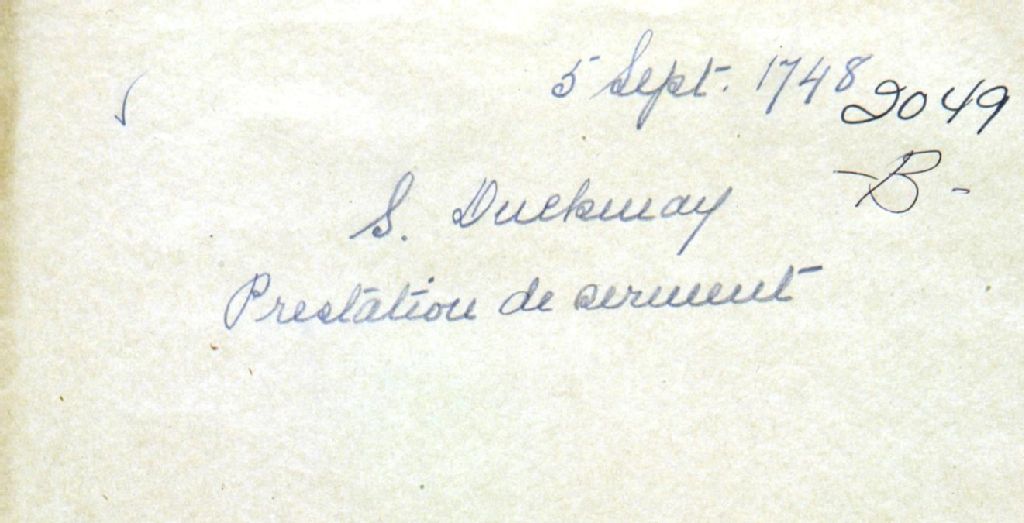 5 Sept. 1748
2049
-B-
S. Duckmay
Prestation de serment